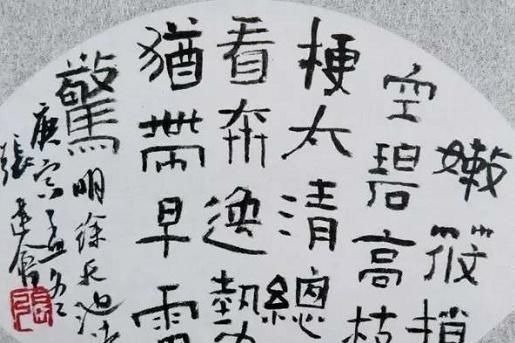 嫩筱捎
空碧高枝
梗太清總
看奔逸勢
猶帶早雷
驚
明徐氏池
庚寅孟冬
張建會